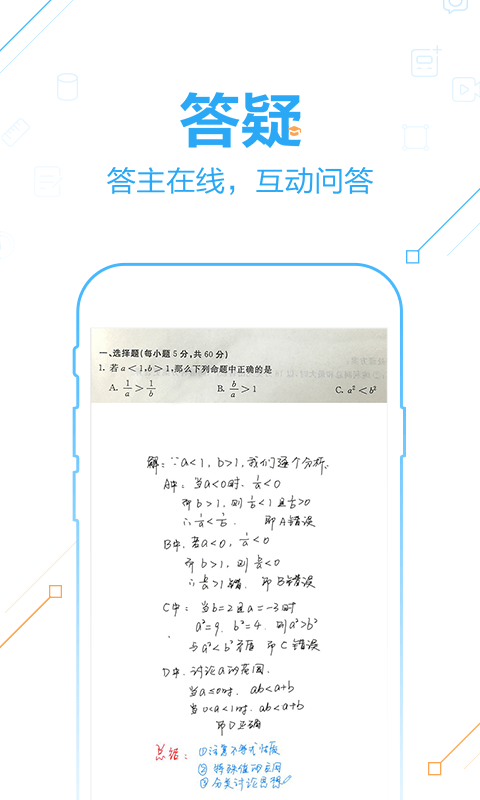 答疑
答主在线，互动问答
一、选择题(每小题5分,共60分)
1. 若a<1,b>1,那么下列命题中正确的是
A. 1/a>1/b B. b/a>1 C. a²<b²
解: ∵a<1, b>1, 我们逐个分析.
A中: 当a<0时. 1/a<0
而b>1, 则1/b<1且1/b>0
∴1/a<1/b. 即A错误
B中. 若a<0, 1/a<0
而b>1, 则b/a<0
∴b/a>1错. 即B错误
C中: 当b=2且a=-3时
a²=9, b²=4. 则a²>b²
与a²<b²矛盾 即C错误
D中. 讨论a的范围.
当a≤0时. ab<a+b
当0<a<1时. ab<a+b
即D正确
总结: ①注意不等式性质
②特殊值的应用
③分类讨论思想